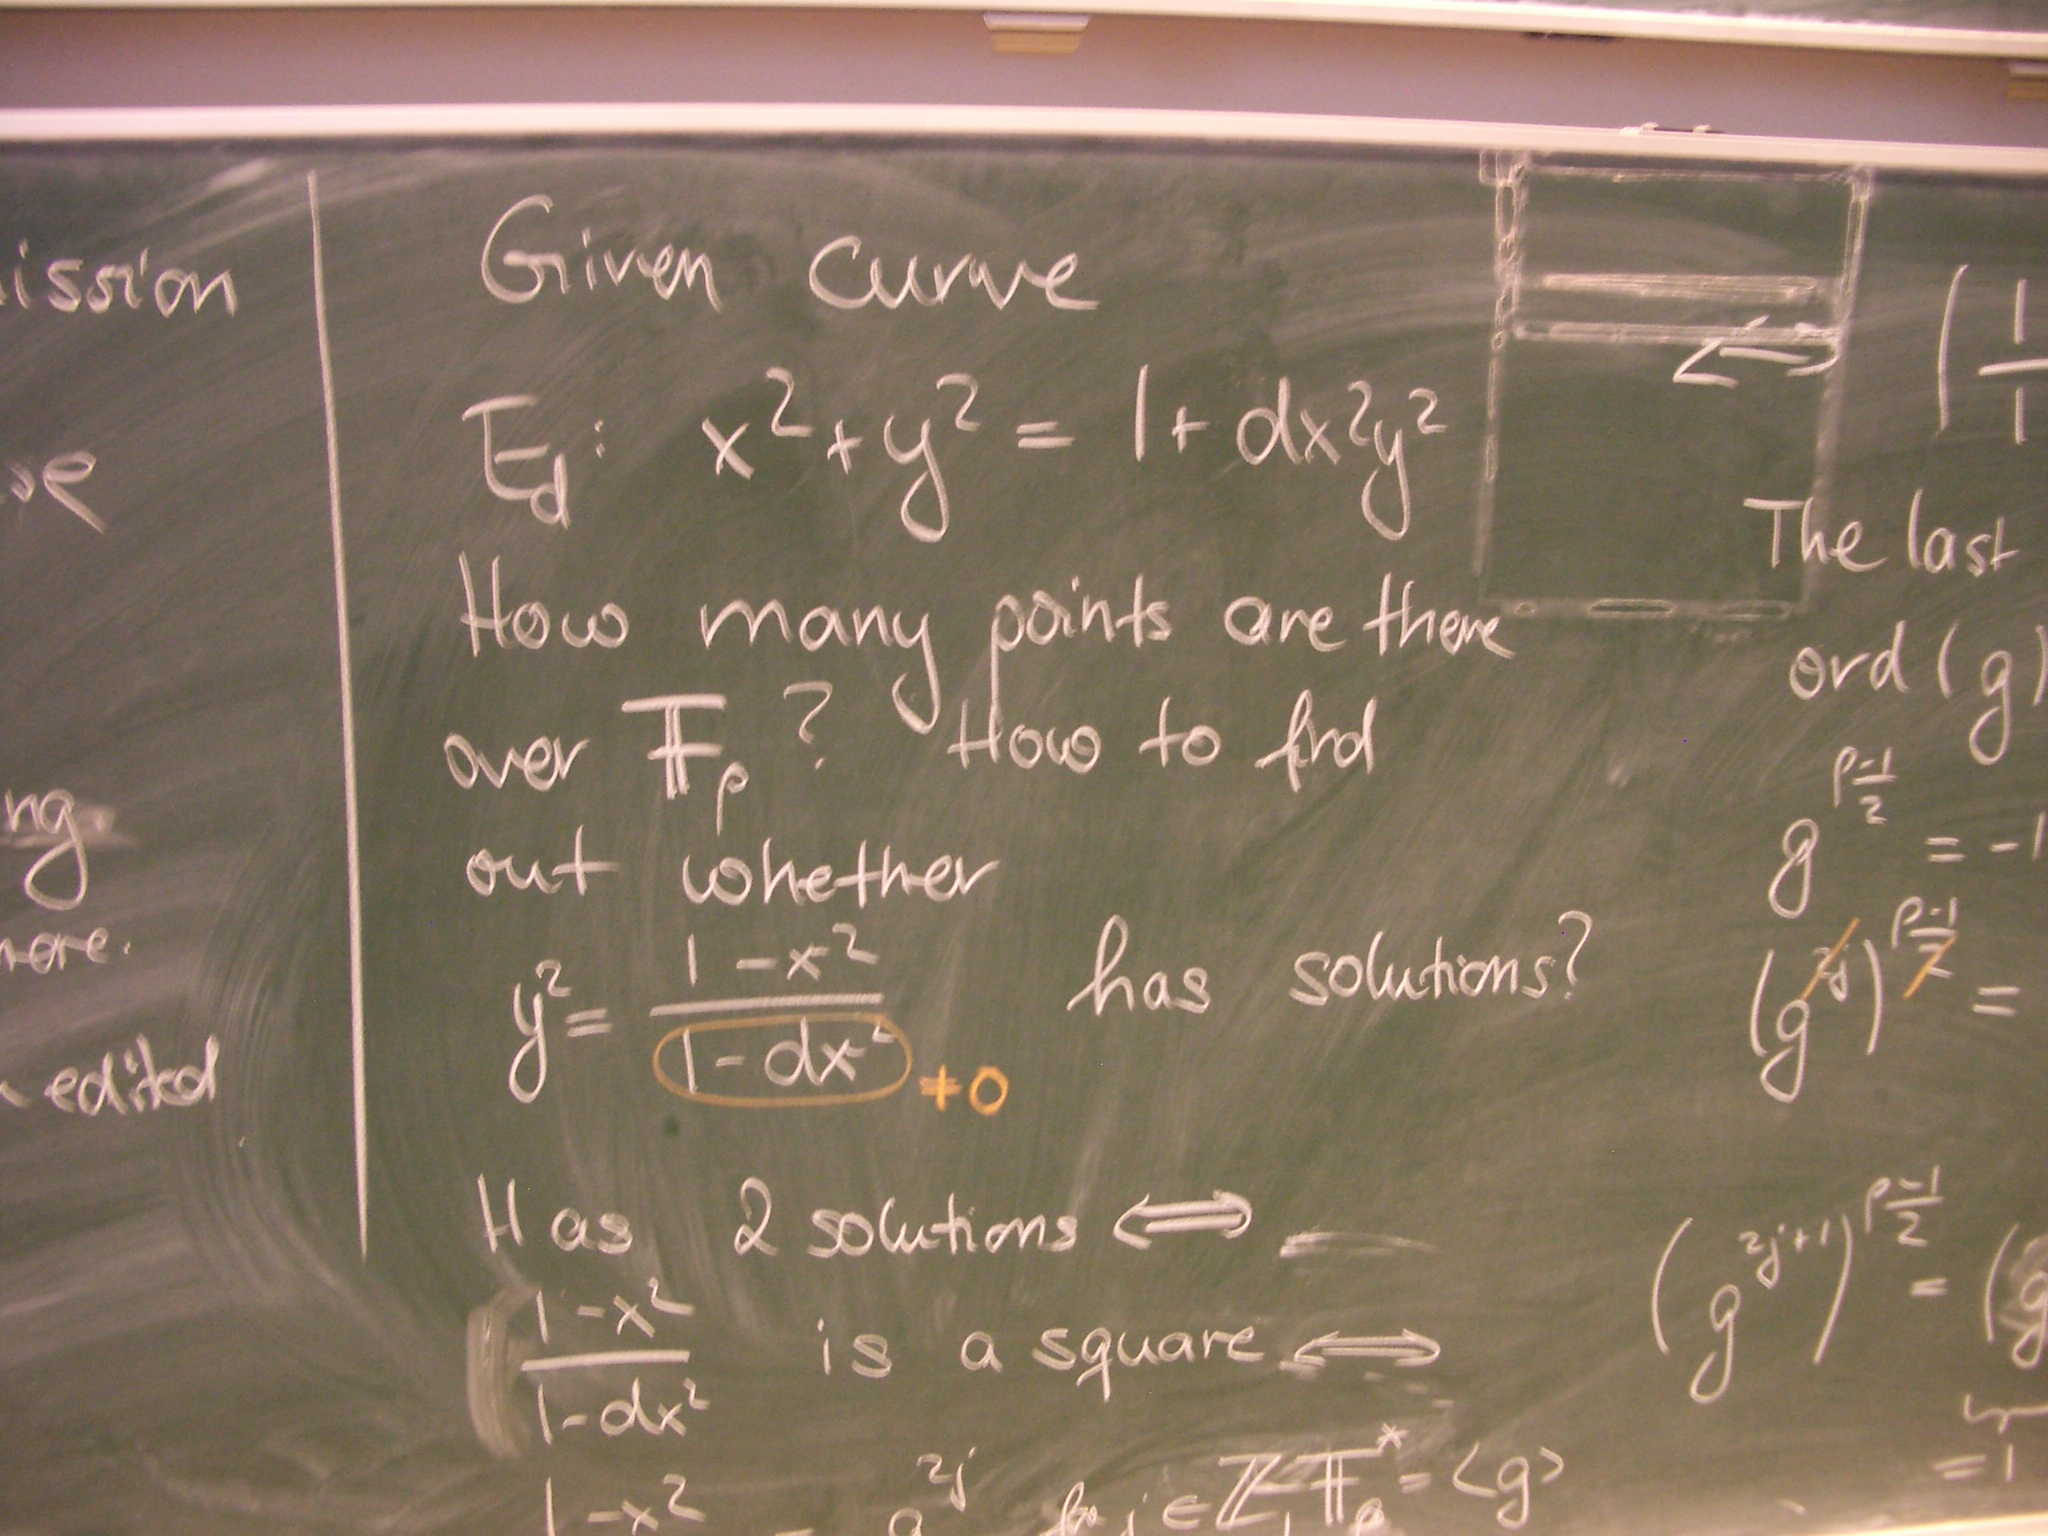 ission
se
ng
more.
edited
Given curve
E_d: x²+y² = 1+dx²y²
How many points are there
over 𝔽_p? How to find
out whether
y² = (1-x²)/(1-dx²) has solutions?
≠0
Has 2 solutions ⟺
(1-x²)/(1-dx²) is a square ⟺
1-x² = g^{2j} for j∈ℤ, 𝔽_p^* = <g>
(1/1
The last
ord(g)
g^{(p-1)/2} = -1
(g^{2j})^{(p-1)/2} =
(g^{2j+1})^{(p-1)/2} = (g
=1